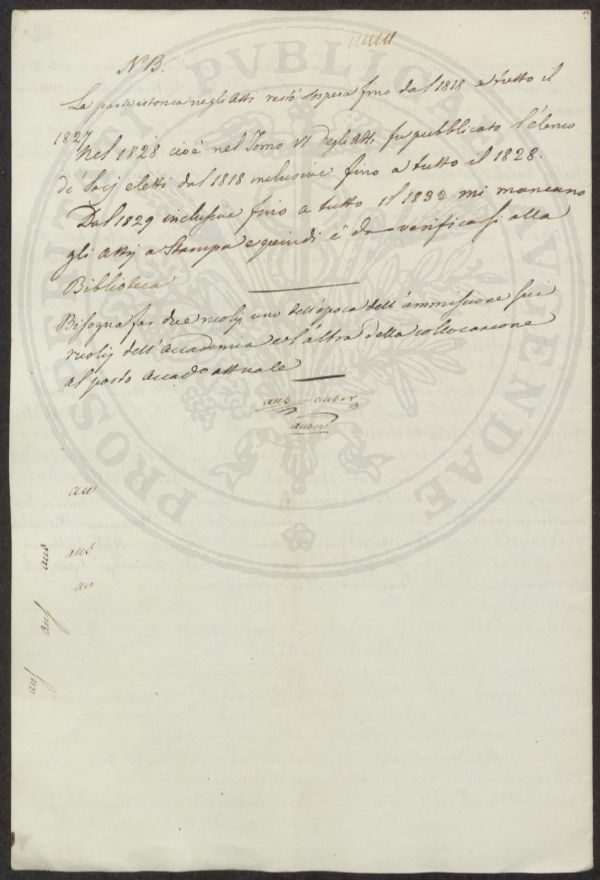 N.B.
La parte istorica negli Atti restò sospesa fino dal 1818 a tutto il
1827
Nel 1828 cioè nel Tomo VI degli Atti fu pubblicato l'elenco
de' Socj eletti dal 1818 inclusive fino a tutto il 1828.
Dal 1829 inclusive fino a tutto il 1832 mi mancano
gli Attj a Stampa e quindi è da verificasi alla
Biblioteca
Bisogna far due ruolj uno dell'epoca dell'ammissione sui
ruolj dell'Accademia e l'altro della collocazione
al posto Accad.o attuale
aus auser
au
aus
au
aus
PROSPERITATI PUBLICAE AUGENDAE